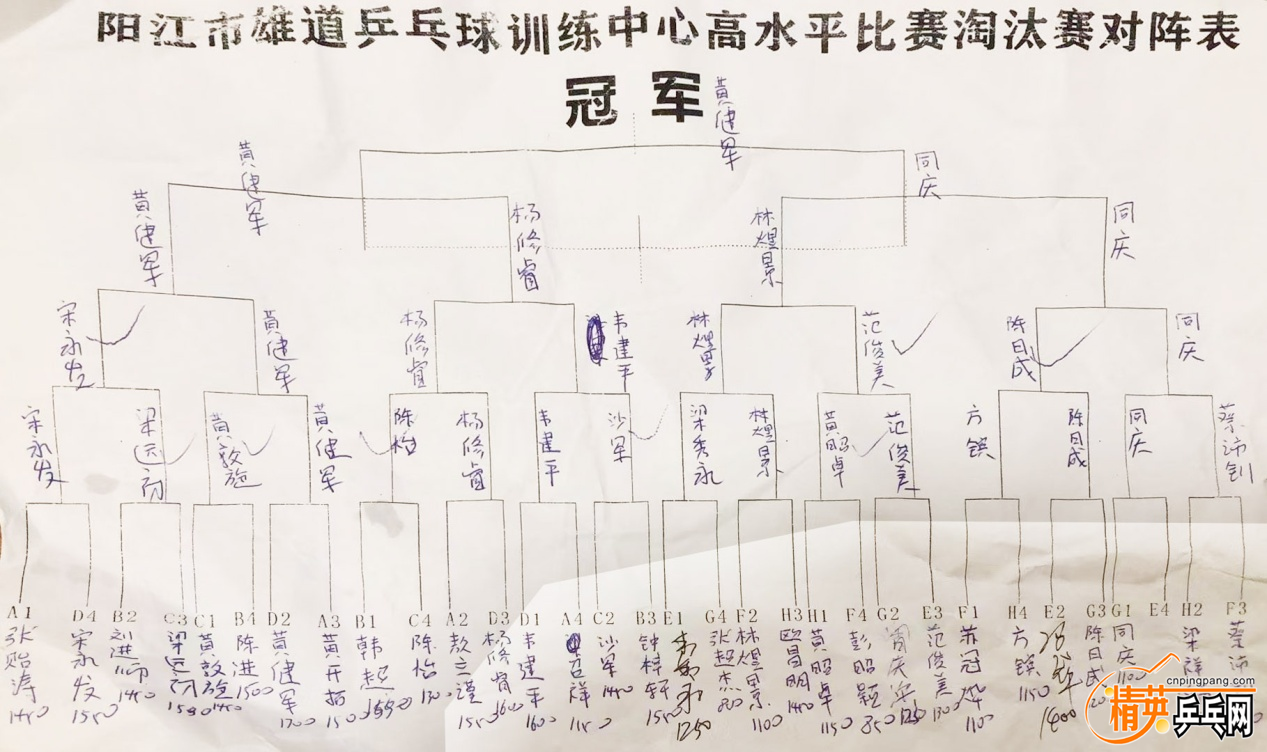 阳江市雄道乒乓球训练中心高水平比赛淘汰赛对阵表
冠军 黄健军
黄健军 同庆
黄健军 杨修睿 林煜景 同庆
宋永发 黄健军 杨修睿 韦建平 林煜景 范俊美 陈日成 同庆
宋永发 黄敦施 黄健军 陈怡 杨修睿 韦建平 沙军 梁秀永 林煜景 黄昭卓 范俊美 方镇 陈日成 同庆 蔡沛钊
A1 D4 B2 C3 C1 B4 D2 A3 B1 C4 A2 D3 D1 A4 C2 B3 E1 G4 F2 H3 H1 F4 G2 E3 F1 H4 E2 G3 G1 E4 H2 F3
张贻涛 宋永发 黄敦施 陈进 黄健军 韩超 陈怡 杨修睿 韦建平 沙军 钟梓轩 张超杰 林煜景 欧昌明 黄昭卓 彭昭颖 范俊美 苏冠烨 方镇 陈日成 同庆 梁祥 蔡沛
1450 1550 1450 1500 1450 1500 1700 1500 1550 1600 1600 1450 1550 1250 1100 1450 1150 850 1300 1100 1150 1400 1100
cnpingpang.com
精英乒乓网